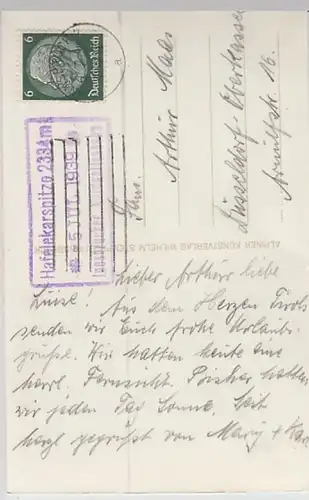 6 Deutsches Reich 6
Hafelekarspitze 2334m
5. OKT. 1939
Fam.
Arthur Maas
Düsseldorf-Oberkassel
Arnulfstr. 16.
ALPINER KUNSTVERLAG WILHELM STEMPFLE
Lieber Arthur liebe
Luise! Aus dem Herzen Tirols
senden wir Euch frohe Urlaubs-
grüße. Wir hatten heute eine
herrl. Fernsicht. Bisher hatten
wir jeden Tag Sonne. Seit
herzl gegrüßt von Mary +